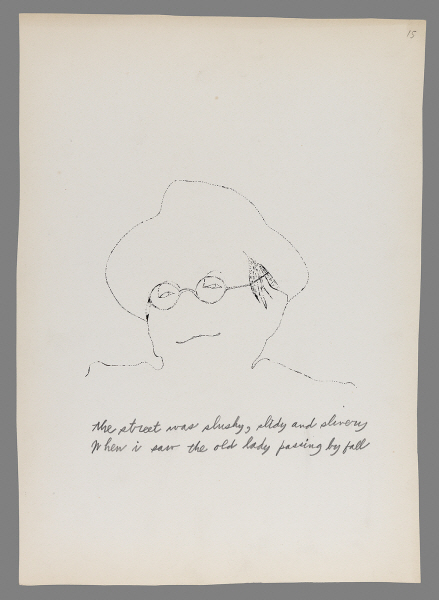 15
the street was slushy, slidy and slivery
When i saw the old lady passing by fall